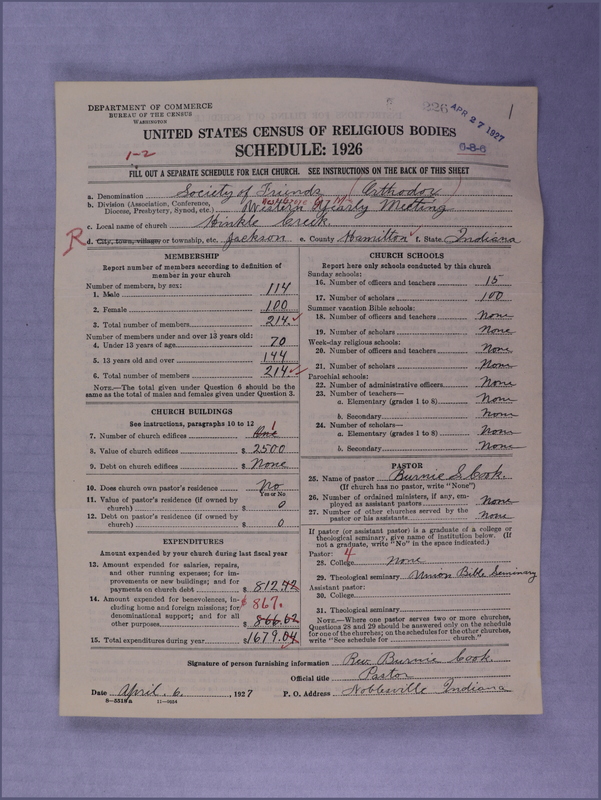 DEPARTMENT OF COMMERCE
BUREAU OF THE CENSUS
WASHINGTON
226 APR 27 1927
1
UNITED STATES CENSUS OF RELIGIOUS BODIES
6-8-6
1-2
SCHEDULE: 1926
FILL OUT A SEPARATE SCHEDULE FOR EACH CHURCH. SEE INSTRUCTIONS ON THE BACK OF THIS SHEET
a. Denomination Society of Friends (Orthodox)
b. Division (Association, Conference, Diocese, Presbytery, Synod, etc.) Western Yearly Meeting
c. Local name of church Hinkle Creek
R d. City, town, village, or township, etc. Jackson e. County Hamilton f. State Indiana
MEMBERSHIP
Report number of members according to definition of
member in your church
Number of members, by sex:
1. Male 114
2. Female 100
3. Total number of members 214
Number of members under and over 13 years old:
4. Under 13 years of age 70
5. 13 years old and over 144
6. Total number of members 214
NOTE.—The total given under Question 6 should be the
same as the total of males and females given under Question 3.
CHURCH BUILDINGS
See instructions, paragraphs 10 to 12
7. Number of church edifices One 1
8. Value of church edifices $ 2500
9. Debt on church edifices $ None
10. Does church own pastor's residence No
Yes or No
11. Value of pastor's residence (if owned by
church) $ 0
12. Debt on pastor's residence (if owned by
church) $ 0
EXPENDITURES
Amount expended by your church during last fiscal year
13. Amount expended for salaries, repairs,
and other running expenses; for im-
provements or new buildings; and for
payments on church debt $ 812.42
14. Amount expended for benevolences, in-
cluding home and foreign missions; for
denominational support; and for all
other purposes $ 866.62
$ 867.
15. Total expenditures during year $ 1679.04
CHURCH SCHOOLS
Report here only schools conducted by this church
Sunday schools:
16. Number of officers and teachers 15
17. Number of scholars 100
Summer vacation Bible schools:
18. Number of officers and teachers None
19. Number of scholars None
Week-day religious schools:
20. Number of officers and teachers None
21. Number of scholars None
Parochial schools:
22. Number of administrative officers None
23. Number of teachers—
a. Elementary (grades 1 to 8) None
b. Secondary None
24. Number of scholars—
a. Elementary (grades 1 to 8) None
b. Secondary None
PASTOR
25. Name of pastor Burnie S. Cook.
(If church has no pastor, write "None")
26. Number of ordained ministers, if any, em-
ployed as assistant pastors None
27. Number of other churches served by the
pastor or his assistants None
If pastor (or assistant pastor) is a graduate of a college or
theological seminary, give name of institution below. (If
not a graduate, write "No" in the space indicated.)
Pastor: 4
28. College None
29. Theological seminary Union Bible Seminary
Assistant pastor:
30. College
31. Theological seminary
NOTE.—Where one pastor serves two or more churches,
Questions 28 and 29 should be answered only on the schedule
for one of the churches; on the schedules for the other churches,
write "See schedule for church."
Signature of person furnishing information Rev. Burnie Cook.
Official title Pastor
Date April 6, 1927 P. O. Address Noblesville Indiana
8—5519a 11—9834